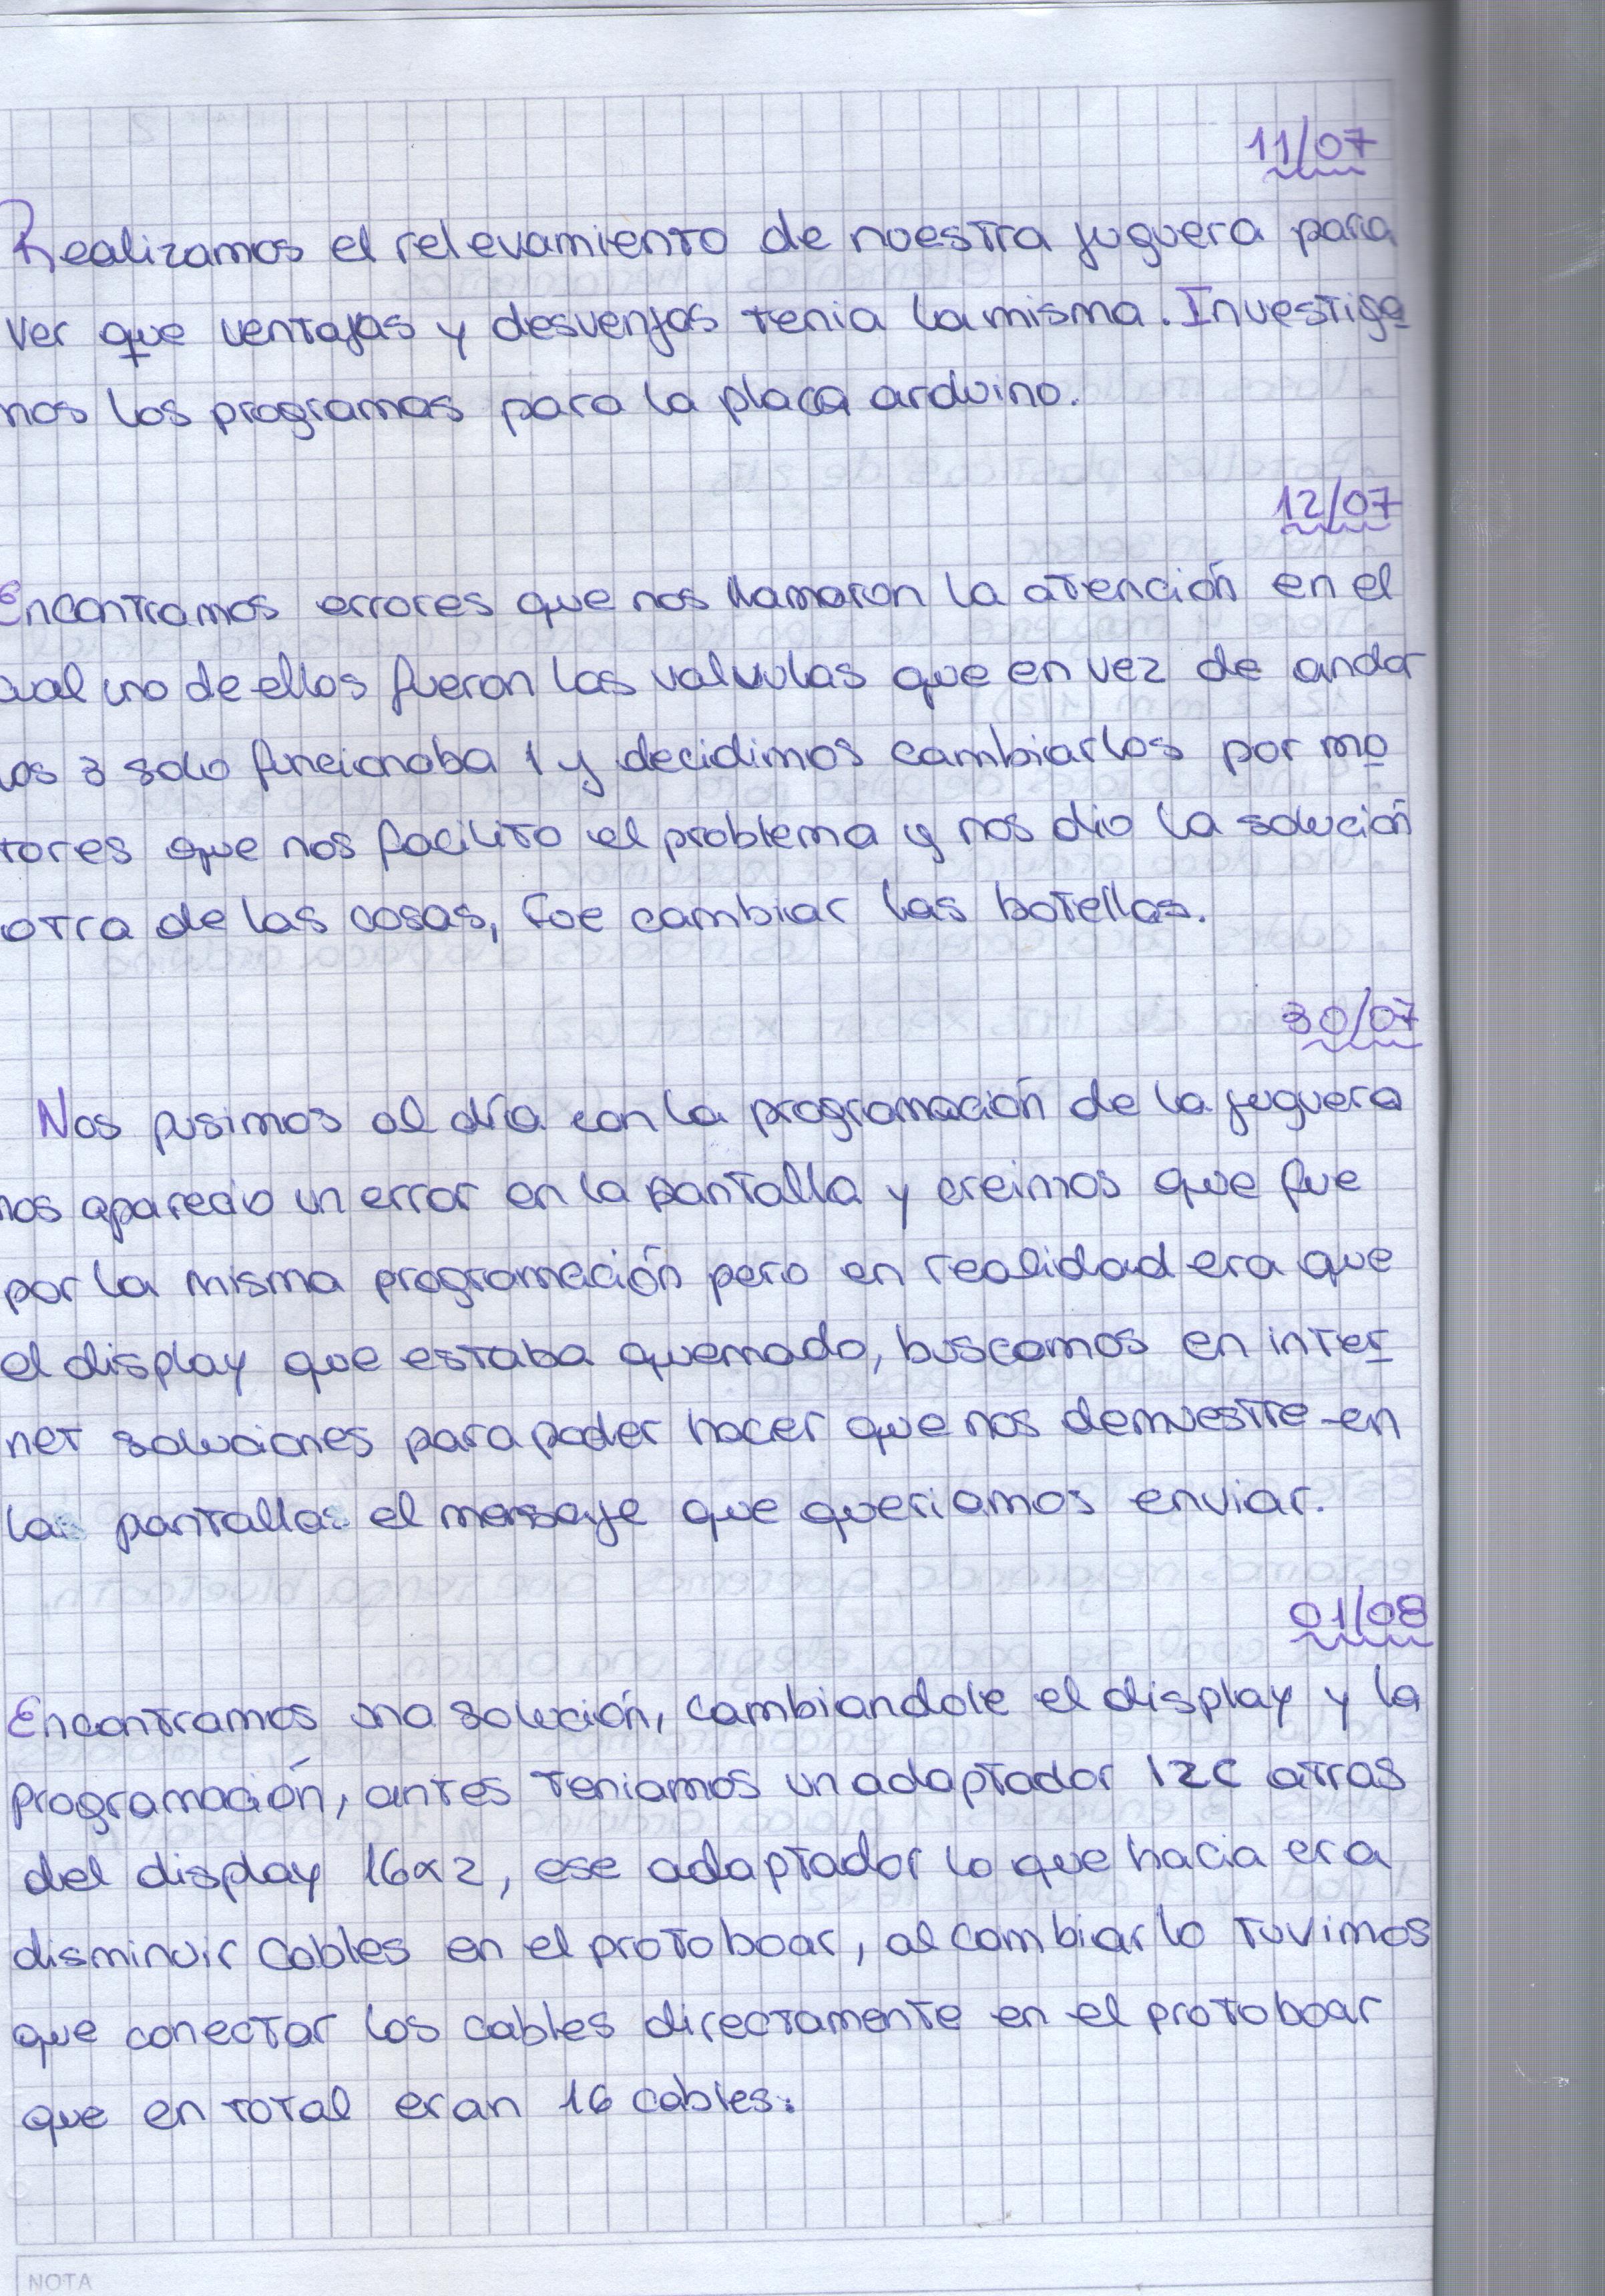 11/07
Realizamos el relevamiento de nuestra juguera para
ver que ventajas y desvenjas tenia la misma. Investiga
mos los programas para la placa arduino.
12/07
Encontramos errores que nos llamaron la atención en el
cual uno de ellos fueron las valvulas que en vez de andar
las 3 solo funcionaba 1 y decidimos cambiarlos por mo
tores que nos facilito el problema y nos dio la solución
otra de las cosas, fue cambiar las botellas.
30/07
Nos pusimos al día con la programación de la juguera
nos aparecio un error en la pantalla y creimos que fue
por la misma programación pero en realidad era que
el display que estaba quemado, buscamos en inter
net soluciones para poder hacer que nos demuestre en
la pantalla el mensaje que queriamos enviar.
01/08
Encontramos una solución, cambiandole el display y la
programación, antes teniamos un adaptador I2C atras
del display 16x2, ese adaptador lo que hacia era
disminuir cables en el protoboar, al cambiarlo tuvimos
que conectar los cables directamente en el protoboar
que en total eran 16 cables.
NOTA